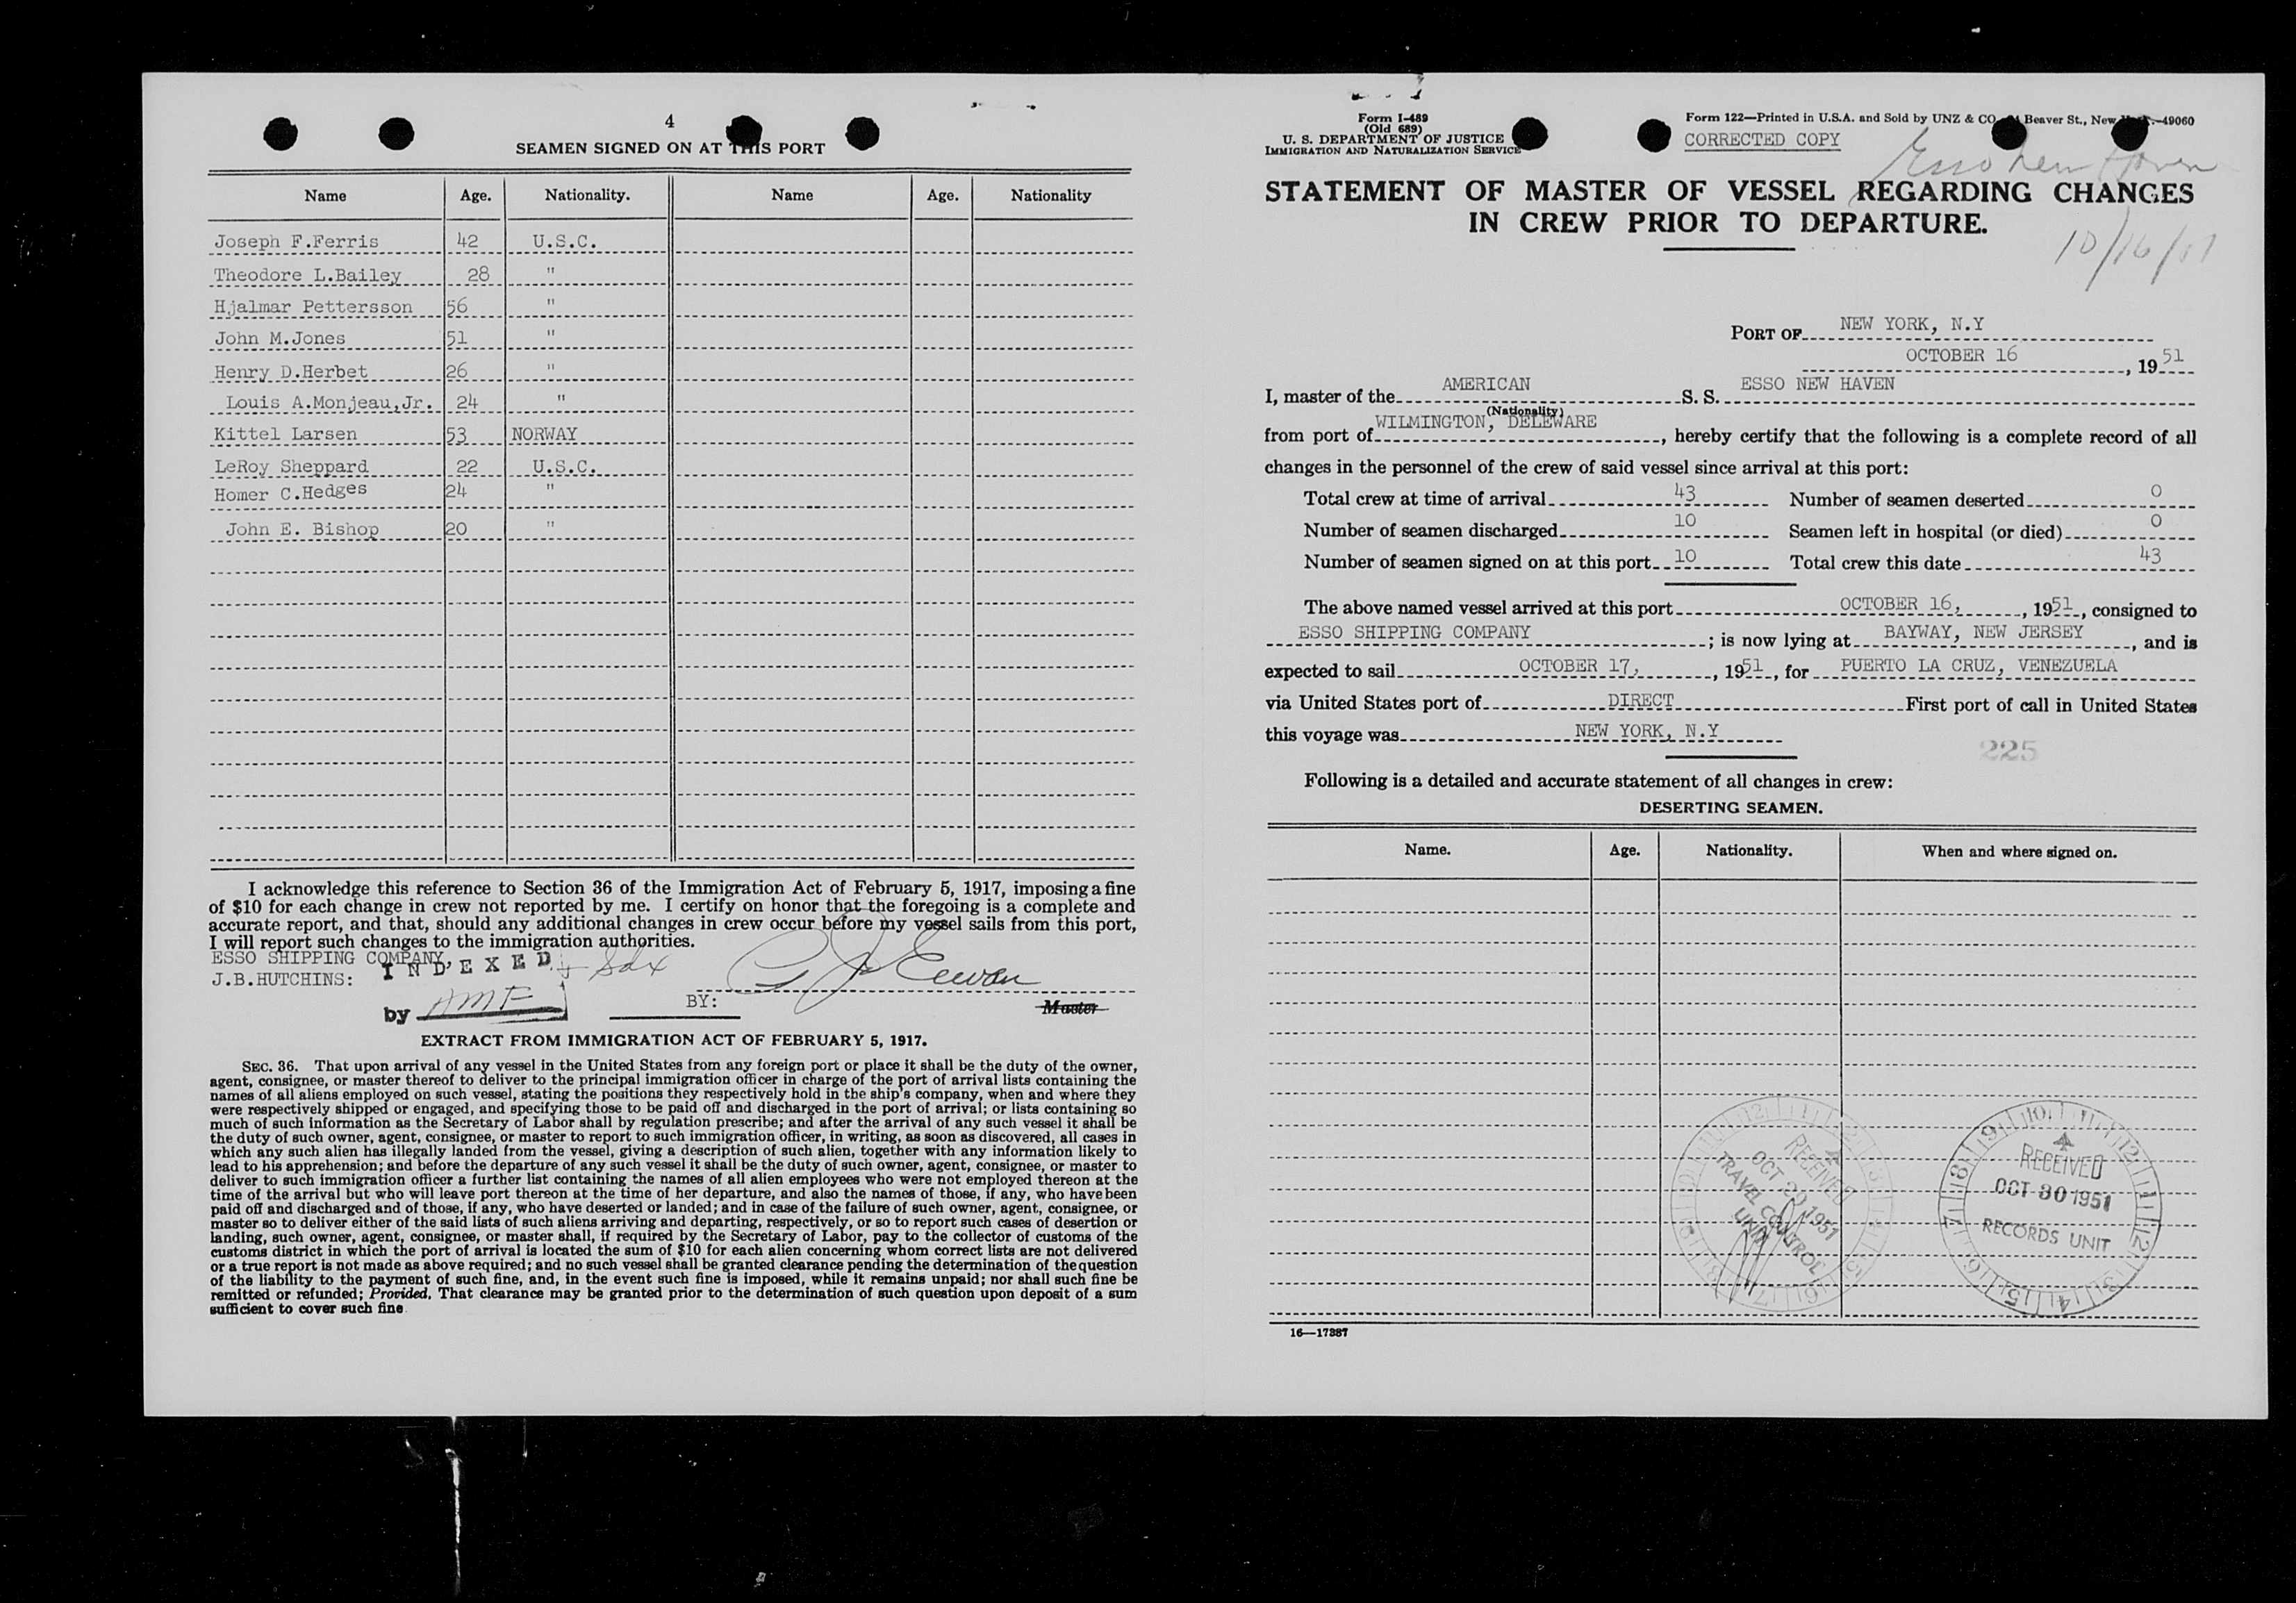 4
SEAMEN SIGNED ON AT THIS PORT
Name Age. Nationality. Name Age. Nationality
Joseph F.Ferris 42 U.S.C.
Theodore L.Bailey 28 "
Hjalmar Pettersson 56 "
John M.Jones 51 "
Henry D.Herbet 26 "
Louis A.Monjeau,Jr. 24 "
Kittel Larsen 53 NORWAY
LeRoy Sheppard 22 U.S.C.
Homer C.Hedges 24 "
John E. Bishop 20 "
I acknowledge this reference to Section 36 of the Immigration Act of February 5, 1917, imposing a fine
of $10 for each change in crew not reported by me. I certify on honor that the foregoing is a complete and
accurate report, and that, should any additional changes in crew occur before my vessel sails from this port,
I will report such changes to the immigration authorities.
ESSO SHIPPING COMPANY,
J.B.HUTCHINS:
INDEXED
by AMF
BY:
Master
EXTRACT FROM IMMIGRATION ACT OF FEBRUARY 5, 1917.
SEC. 36. That upon arrival of any vessel in the United States from any foreign port or place it shall be the duty of the owner,
agent, consignee, or master thereof to deliver to the principal immigration officer in charge of the port of arrival lists containing the
names of all aliens employed on such vessel, stating the positions they respectively hold in the ship's company, when and where they
were respectively shipped or engaged, and specifying those to be paid off and discharged in the port of arrival; or lists containing so
much of such information as the Secretary of Labor shall by regulation prescribe; and after the arrival of any such vessel it shall be
the duty of such owner, agent, consignee, or master to report to such immigration officer, in writing, as soon as discovered, all cases in
which any such alien has illegally landed from the vessel, giving a description of such alien, together with any information likely to
lead to his apprehension; and before the departure of any such vessel it shall be the duty of such owner, agent, consignee, or master to
deliver to such immigration officer a further list containing the names of all alien employees who were not employed thereon at the
time of the arrival but who will leave port thereon at the time of her departure, and also the names of those, if any, who have been
paid off and discharged and of those, if any, who have deserted or landed; and in case of the failure of such owner, agent, consignee, or
master so to deliver either of the said lists of such aliens arriving and departing, respectively, or so to report such cases of desertion or
landing, such owner, agent, consignee, or master shall, if required by the Secretary of Labor, pay to the collector of customs of the
customs district in which the port of arrival is located the sum of $10 for each alien concerning whom correct lists are not delivered
or a true report is not made as above required; and no such vessel shall be granted clearance pending the determination of the question
of the liability to the payment of such fine, and, in the event such fine is imposed, while it remains unpaid; nor shall such fine be
remitted or refunded; Provided, That clearance may be granted prior to the determination of such question upon deposit of a sum
sufficient to cover such fine.
Form I-489
(Old 689)
U. S. DEPARTMENT OF JUSTICE
IMMIGRATION AND NATURALIZATION SERVICE
Form 122—Printed in U.S.A. and Sold by UNZ & CO. Beaver St., New 49060
CORRECTED COPY
Esso New Haven
STATEMENT OF MASTER OF VESSEL REGARDING CHANGES
IN CREW PRIOR TO DEPARTURE.
10/16/51
PORT OF NEW YORK, N.Y
OCTOBER 16, 1951
I, master of the AMERICAN S. S. ESSO NEW HAVEN
(Nationality)
from port of WILMINGTON, DELEWARE, hereby certify that the following is a complete record of all
changes in the personnel of the crew of said vessel since arrival at this port:
Total crew at time of arrival 43 Number of seamen deserted 0
Number of seamen discharged 10 Seamen left in hospital (or died) 0
Number of seamen signed on at this port 10 Total crew this date 43
The above named vessel arrived at this port OCTOBER 16, , 1951, consigned to
ESSO SHIPPING COMPANY; is now lying at BAYWAY, NEW JERSEY, and is
expected to sail OCTOBER 17, , 1951, for PUERTO LA CRUZ, VENEZUELA
via United States port of DIRECT First port of call in United States
this voyage was NEW YORK, N.Y
225
Following is a detailed and accurate statement of all changes in crew:
DESERTING SEAMEN.
Name. Age. Nationality. When and where signed on.
RECEIVED
OCT 29 1951
TRAVEL CONTROL
UNIT
RECEIVED
OCT 30 1951
RECORDS UNIT
16—17387